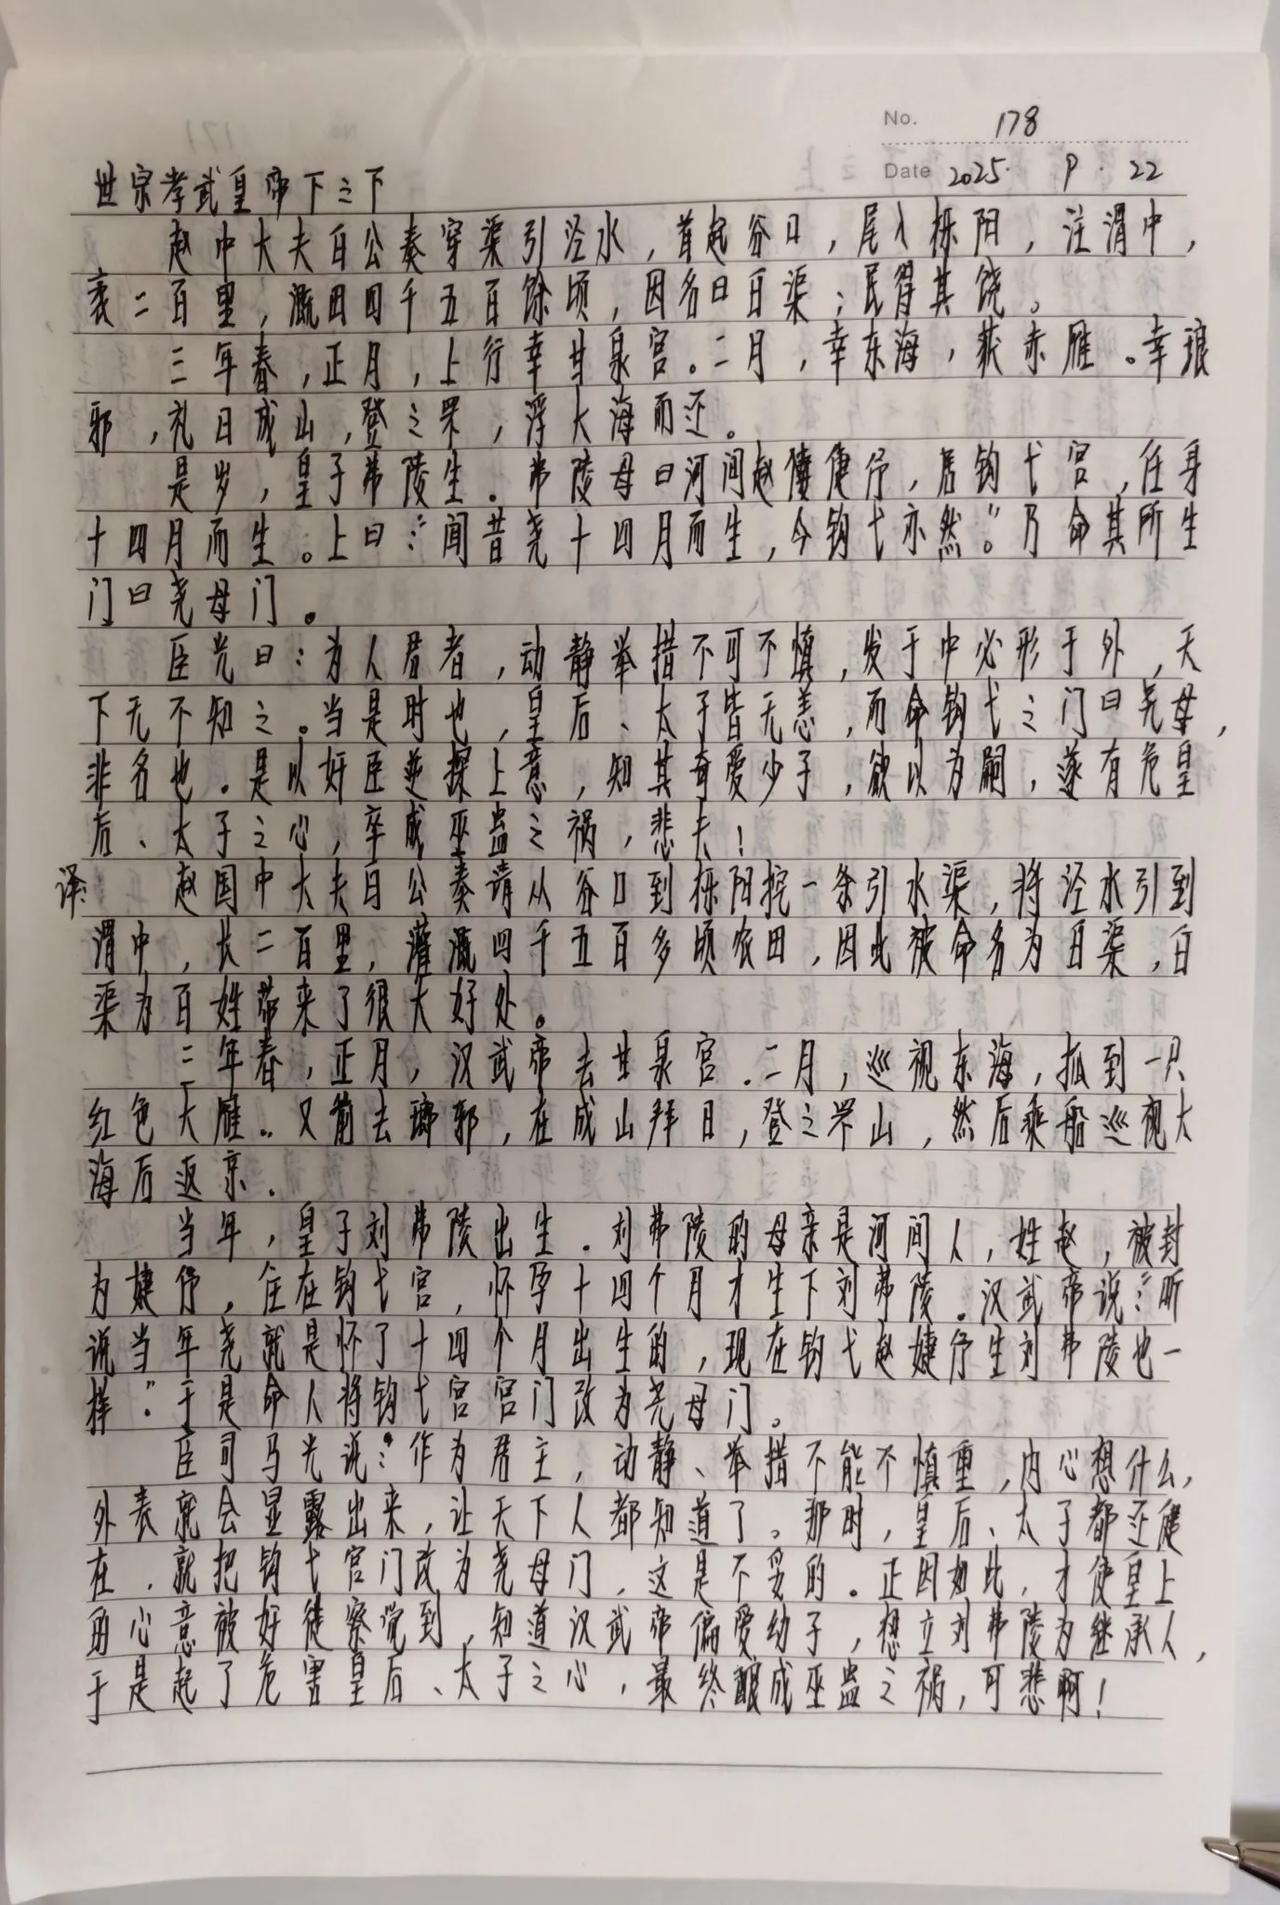 No. 178
Date 2025. 9. 22
世宗孝武皇帝下之下
赵中大夫白公奏穿渠引泾水，首起谷口，尾入栎阳，注渭中，
袤二百里，溉田四千五百馀顷，因名曰白渠；民得其饶。
三年春，正月，上行幸甘泉宫。二月，幸东海，获赤雁。幸琅
邪，礼日成山，登之罘，浮大海而还。
是岁，皇子弗陵生。弗陵母曰河间赵倢伃，居钩弋宫，任身
十四月而生。上曰：“闻昔尧十四月而生，今钩弋亦然。”乃命其所生
门曰尧母门。
臣光曰：为人君者，动静举措不可不慎，发于中必形于外，天
下无不知之。当是时也，皇后、太子皆无恙，而命钩弋之门曰尧母，
非名也。是以奸臣逆探上意，知其奇爱少子，欲以为嗣，遂有危皇
后、太子之心，卒成巫蛊之祸，悲夫！
译：赵国中大夫白公奏请从谷口到栎阳挖一条引水渠，将泾水引到
渭中，长二百里，灌溉四千五百多顷农田，因此被命名为白渠，白
渠为百姓带来了很大好处。
三年春，正月，汉武帝去甘泉宫。二月，巡视东海，抓到一只
红色大雁。又前去琅邪，在成山拜日，登之罘山，然后乘船巡视大
海后返京。
当年，皇子刘弗陵出生。刘弗陵的母亲是河间人，姓赵，被封
为婕伃，住在钩弋宫，怀孕十四个月才生下刘弗陵。汉武帝说：“听
说当年尧就是怀了十四个月出生的，现在钩弋赵婕伃生刘弗陵也一
样”。于是命人将钩弋宫宫门改为尧母门。
臣司马光说：作为君主，动静、举措不能不慎重，内心想什么，
外表就会显露出来，让天下人都知道了。那时，皇后、太子都还健
在，就把钩弋宫门改为尧母门，这是不妥的。正因如此，才使皇上
的心意被奸徒察觉到，知道汉武帝偏爱幼子，想立刘弗陵为继承人，
于是起了危害皇后、太子之心，最终酿成巫蛊之祸，可悲啊！